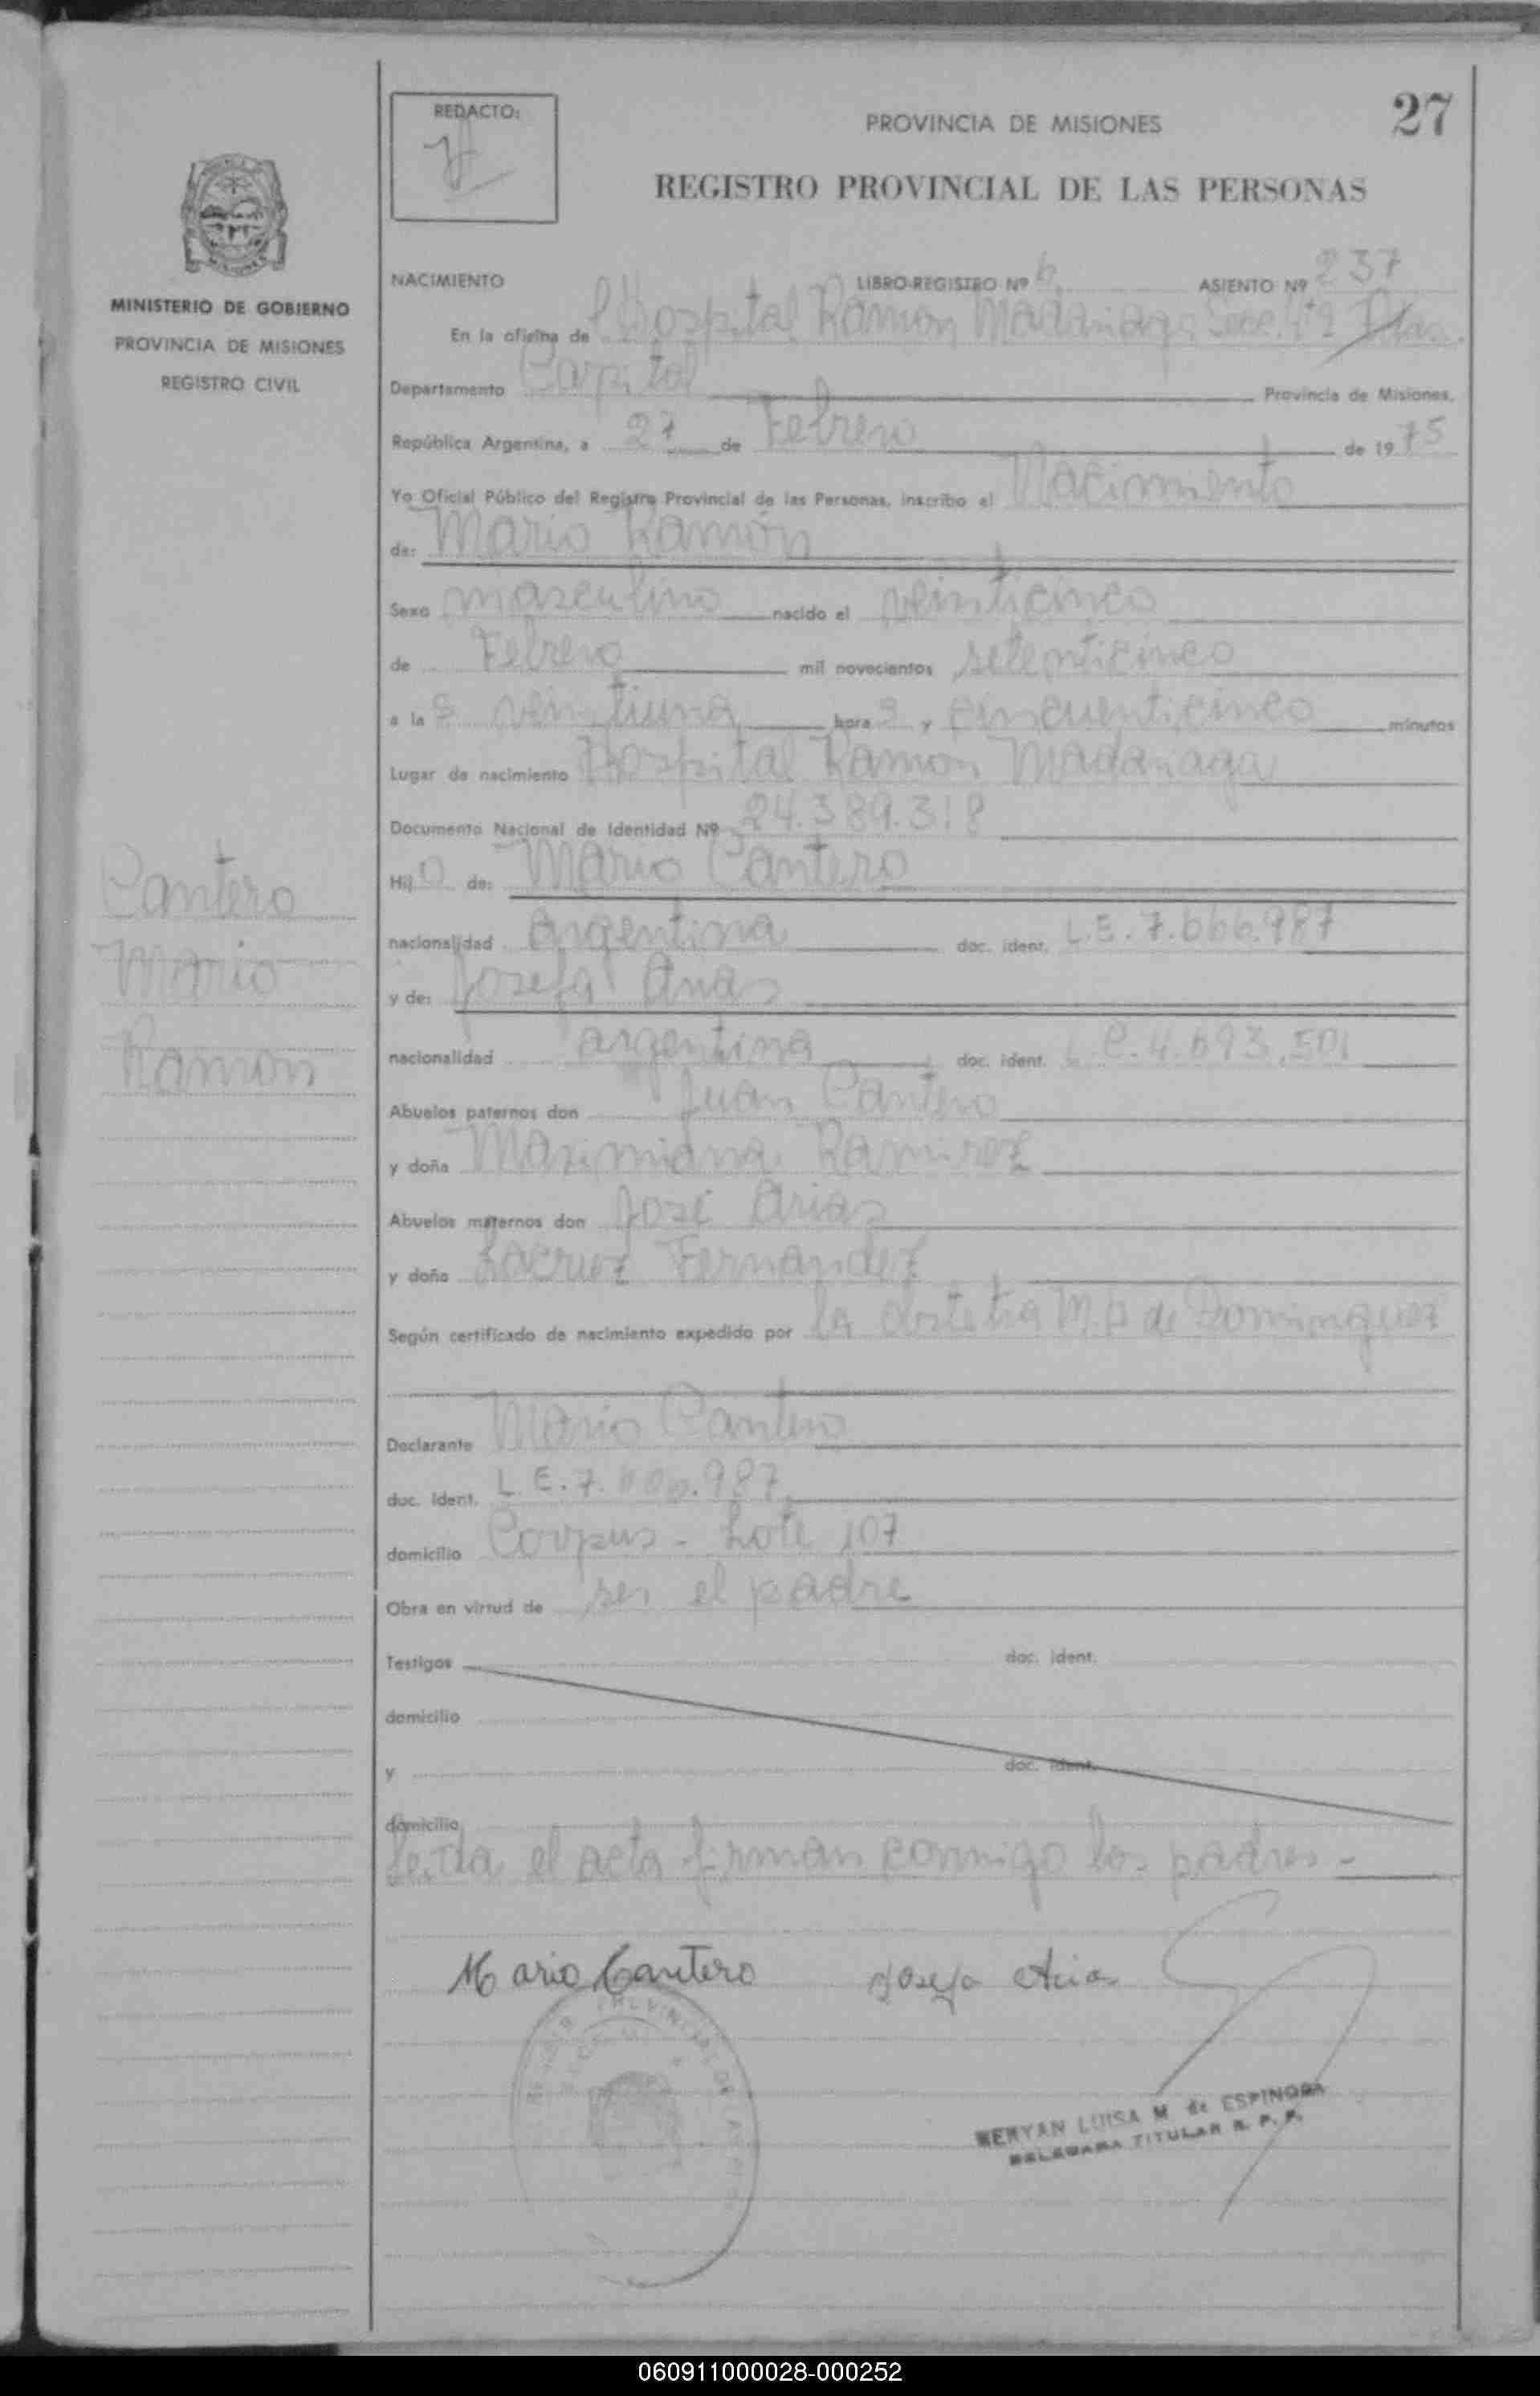 27
REDACTO:
PROVINCIA DE MISIONES
REGISTRO PROVINCIAL DE LAS PERSONAS
MINISTERIO DE GOBIERNO
PROVINCIA DE MISIONES
REGISTRO CIVIL
NACIMIENTO LIBRO-REGISTRO Nº 6 ASIENTO Nº 237
En la oficina de Hospital Ramon Madariaga Secc. 4ta
Departamento Capital Provincia de Misiones.
República Argentina, a 27 de Febrero de 1975
Yo Oficial Público del Registro Provincial de las Personas, inscribo el Nacimiento
de: Mario Ramón
Sexo masculino nacido el veinticinco
de Febrero mil novecientos setenticinco
a las veintiuna horas y cincuenticinco minutos
Lugar de nacimiento Hospital Ramon Madariaga
Documento Nacional de Identidad Nº 24.389.318
Hijo de: Mario Cantero
nacionalidad argentina doc. ident. L.E. 7.666.987
y de: Josefa Arias
nacionalidad argentina doc. ident. L.C. 4.693.501
Abuelos paternos don Juan Cantero
y doña Maximiana Ramirez
Abuelos maternos don José Arias
y doña Lacruz Fernandez
Según certificado de nacimiento expedido por la obstetra M.P de Dominguez
Declarante Mario Cantero
doc. ident. L.E. 7.666.987
domicilio Corpus - Lote 107
Obra en virtud de ser el padre
Testigos doc. ident.
domicilio
y doc. ident.
domicilio
Leida el acta firman conmigo los padres -
Cantero
Mario
Ramon
Mario Cantero Josefa Arias
LUISA M de ESPINOZA
DELEGADA TITULAR R. P. P.
060911000028-000252